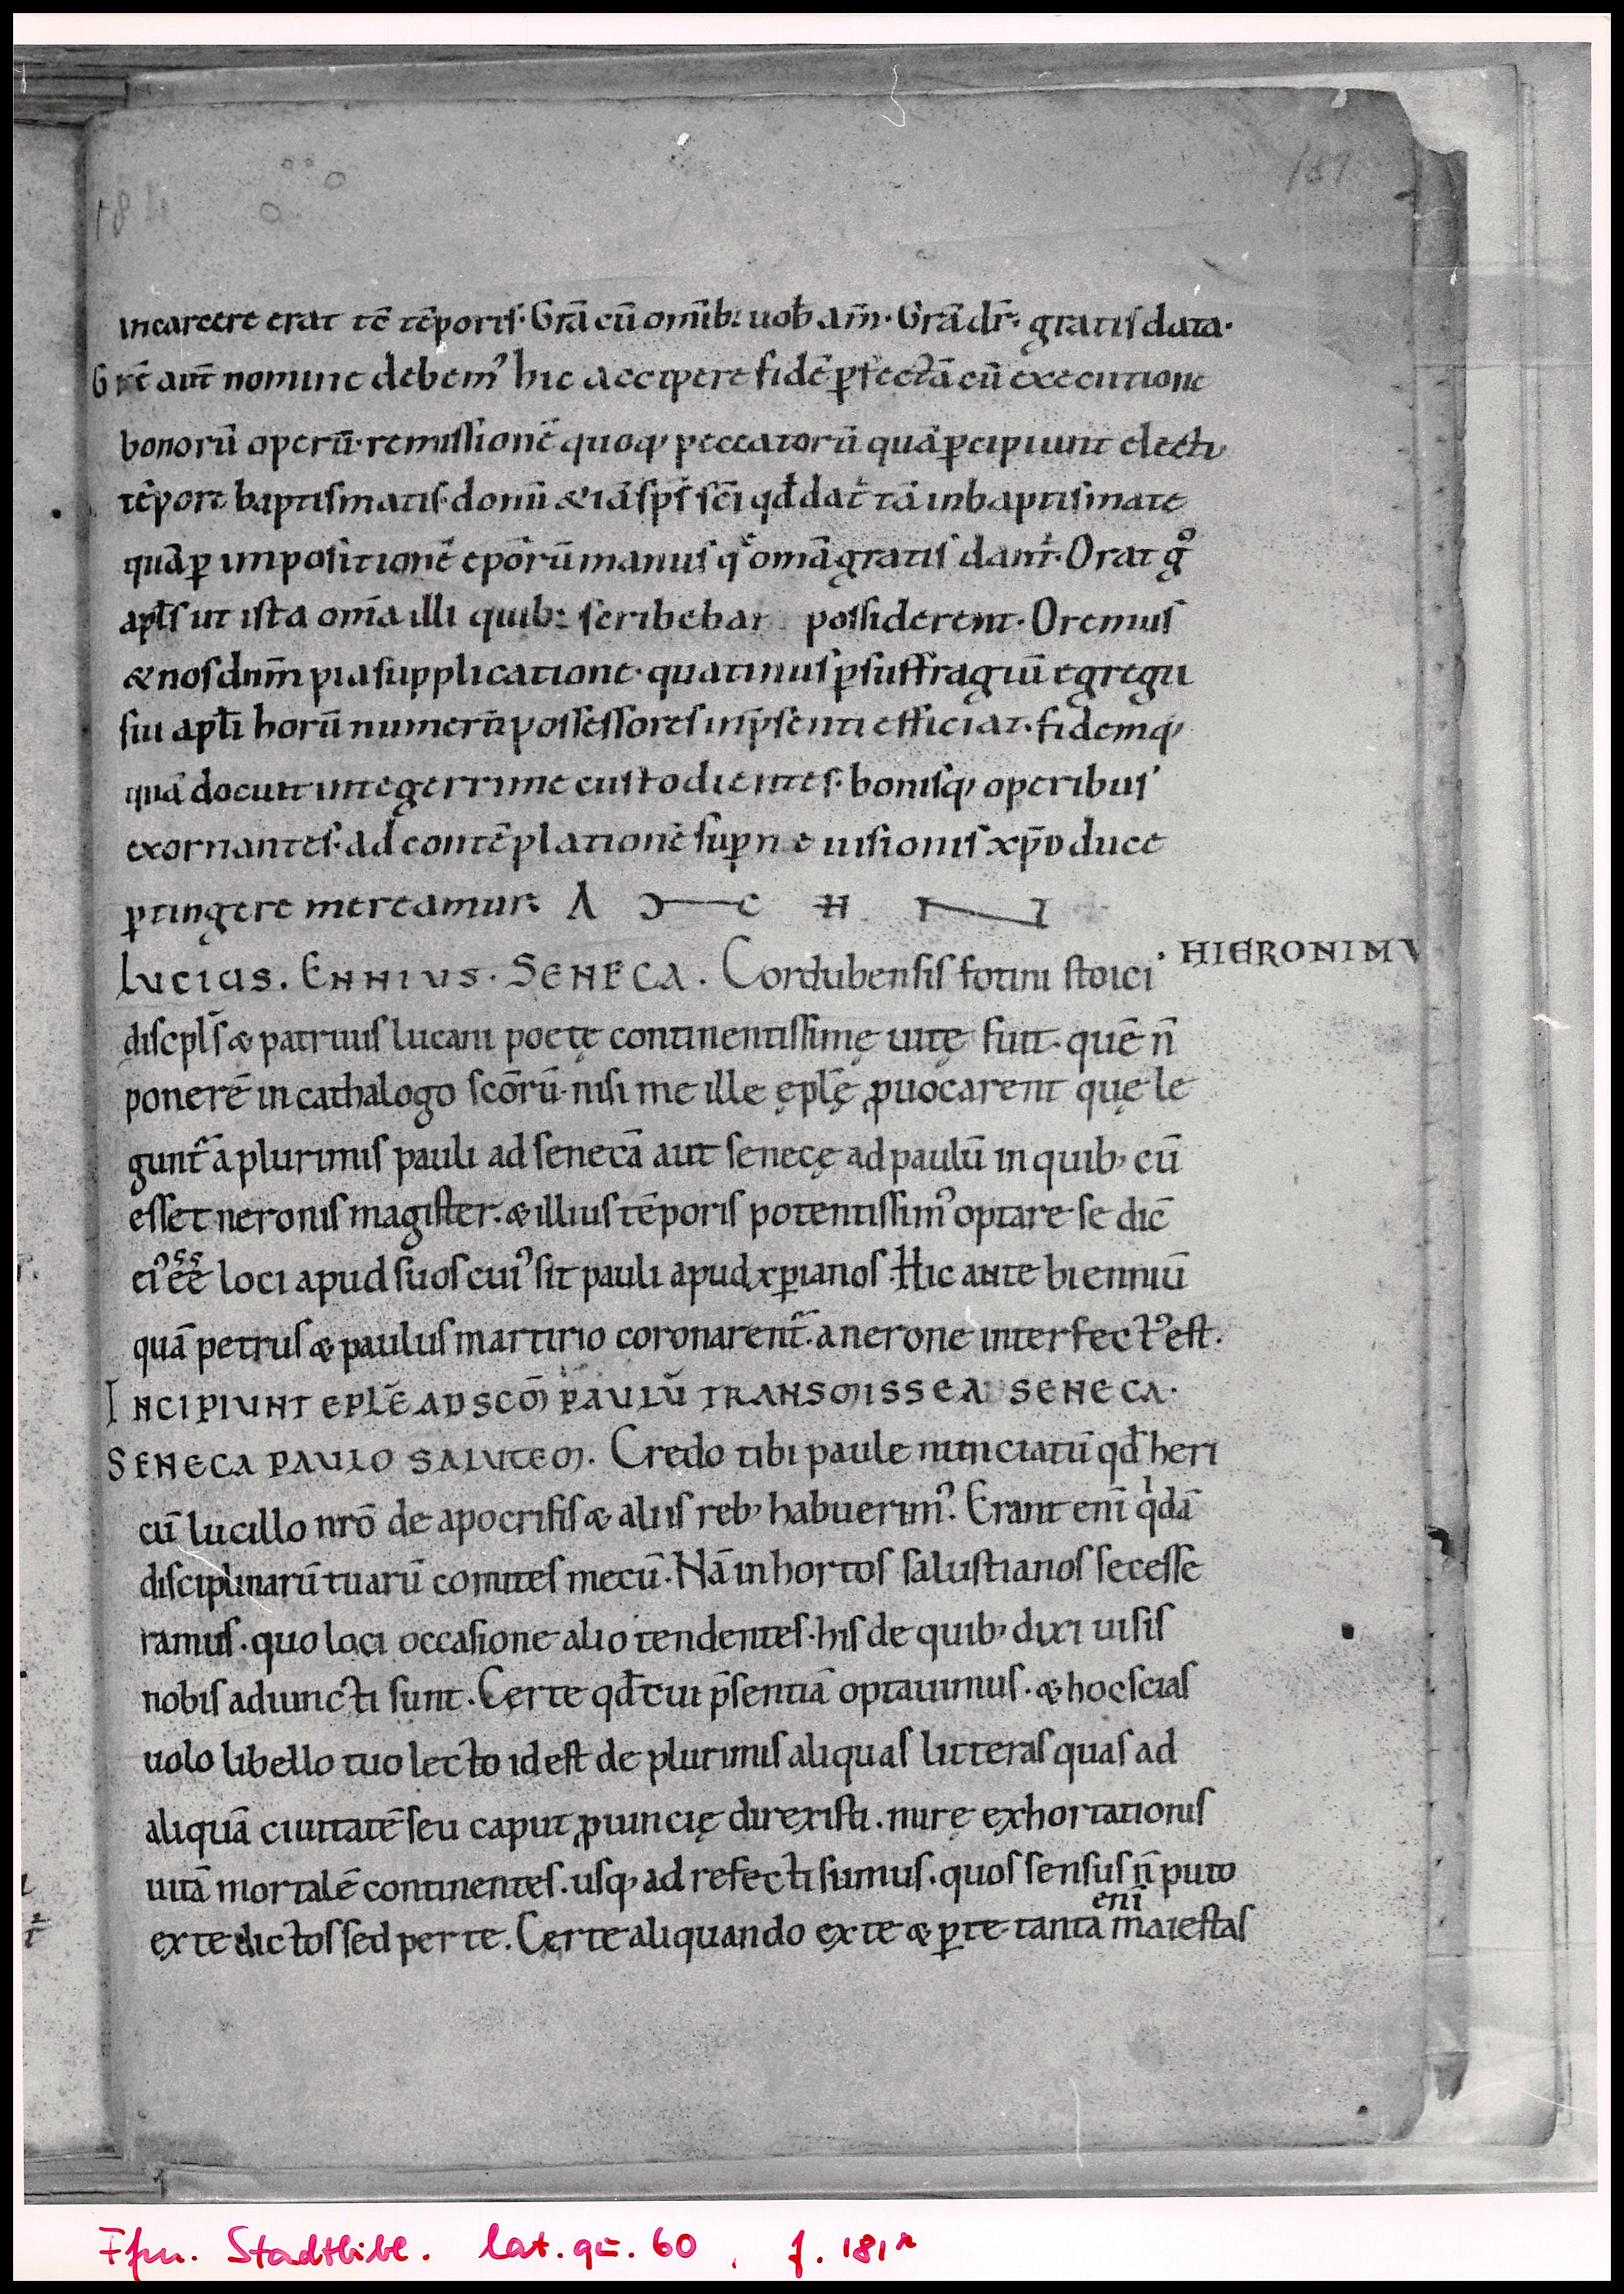 181
incarcere erat tc̄ tēporis. Grā cū omīb: uob am̄. Grā dr̄. gratis data.
Grē aut̄ nomine debem᾿ hic accipere fidē ꝑfectā cū executione
bonorū operū. remissionē quoq; peccatorū quā ꝑcipiunt electi
tēpore baptismatis. donū & iā sps̄ sc̄i qd̄ dat᷑ tā inbaptismate
quā ꝑ impositionē epōrū manus qͤ omā gratis dant᷑. Orat gͦ
apl̄s ut ista om̄a illi quib: scribebat possiderent. Oremus
& nos dnm̄ pia supplicatione. quatinus ꝑ suffragiū egregii
sui apl̄i horū numerū possessores inp̄senti efficiat. fidemq;
quā docuit integerrime custodientes. bonisq; operibus
exornantes. ad contēplationē suꝑne uisionis xp̄o duce
ꝑtingere mereamur:
LUCIUS. ENNIUS. SENECA. Cordubensis fotini stoici HIERONIMV
discpl̄s & patruus lucani poetę continentissimę uitę fuit. quē n̄
ponerē in cathalogo scōrū. nisi me ille ępl̄ę ꝓuocarent quę le
gunt᷑ a plurimis pauli ad senecā aut senecę ad paulū in quib; cū
esset neronis magister. & illius tēporis potentissim᾿ optare se dic̄
ei᾿ ēē loci apud suos cui᾿ sit pauli apud xꝑianos. Hic ante bienniū
quā petrus & paulus martirio coronarent᷑. a nerone interfect᾿ est.
INCIPIUNT EPLĒ AD SCM̄ PAULŪ TRANSMISSE A SENECA.
SENECA PAULO SALUTEM. Credo tibi paule nunciatū qd̄ heri
cū lucillo nrō de apocrifis & aliis reb; habuerim᾿. Erant enī qͥdā
disciplinarū tuarū comites mecū. Nā in hortos salustianos secesse
ramus. quo loci occasione alio tendentes. his de quib; dixi uisis
nobis adiuncti sunt. Certe qd̄ tui p̄sentiā optauimus. & hoc scias
uolo libello tuo lecto id est de plurimis aliquas litteras quas ad
aliquā ciuitatē seu caput ꝓuincię direxisti. mire exhortationis
uitā mortalē continentes. usq; ad refecti sumus. quos sensus n̄ puto
ex te dictos sed per te. Certe aliquando ex te & ꝑ te tanta enī maiestas
Ffm. Stadtbibl. lat. qu. 60, f. 181r